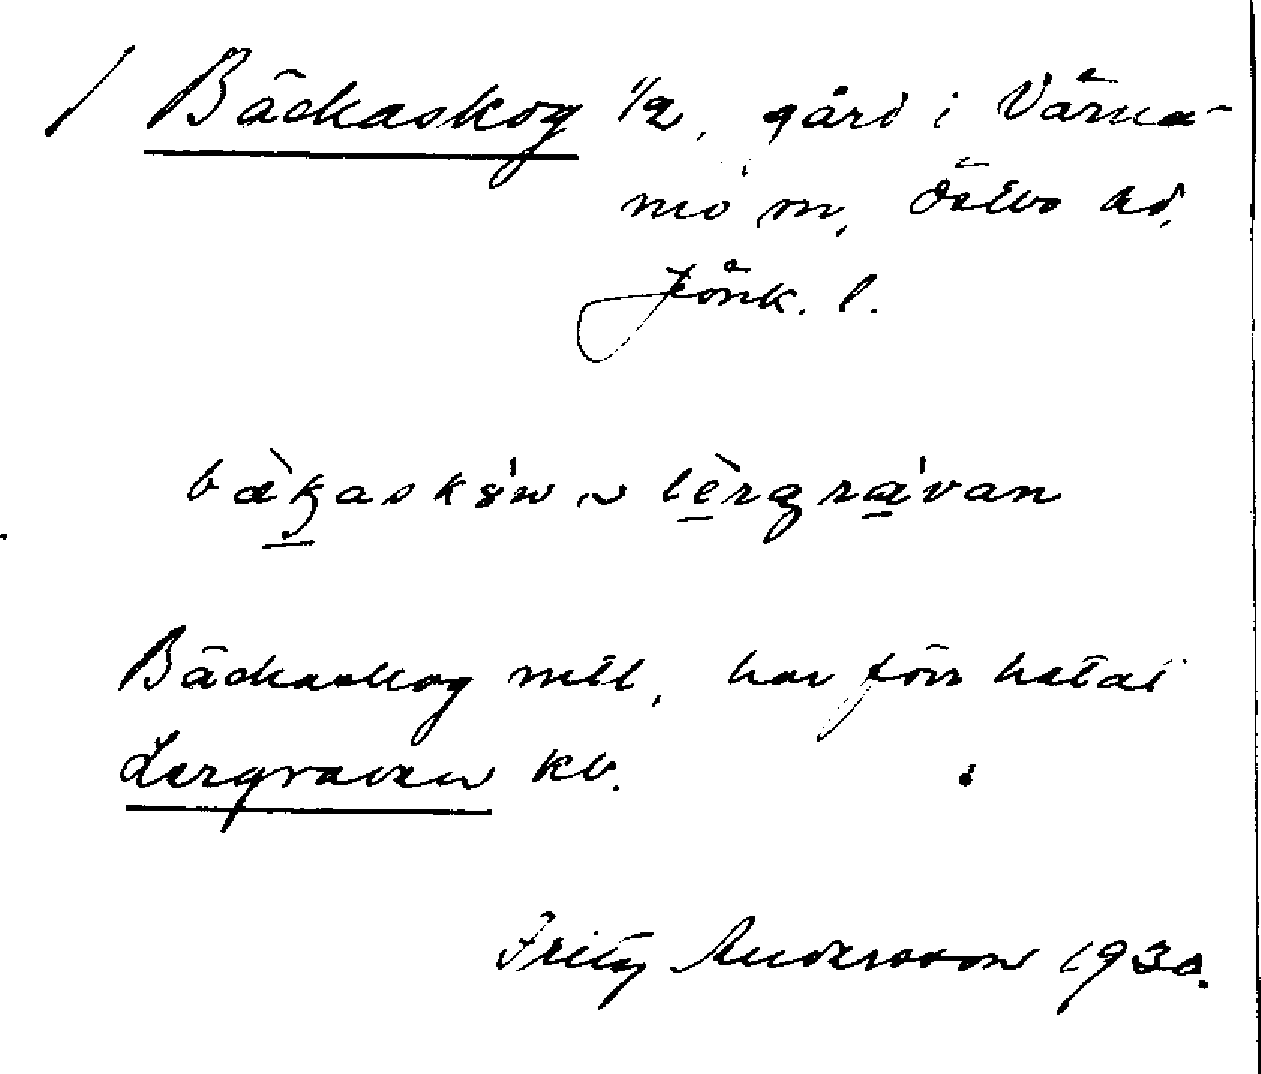 / Bäckaskog 1/2, gård i Värna-
mo sn, Östbo hd,
Jönk. l.
lèrgrávan
Bäckaskog mtl, har förr hetat
Lergraven kb.
Fritz Andersson 1930.